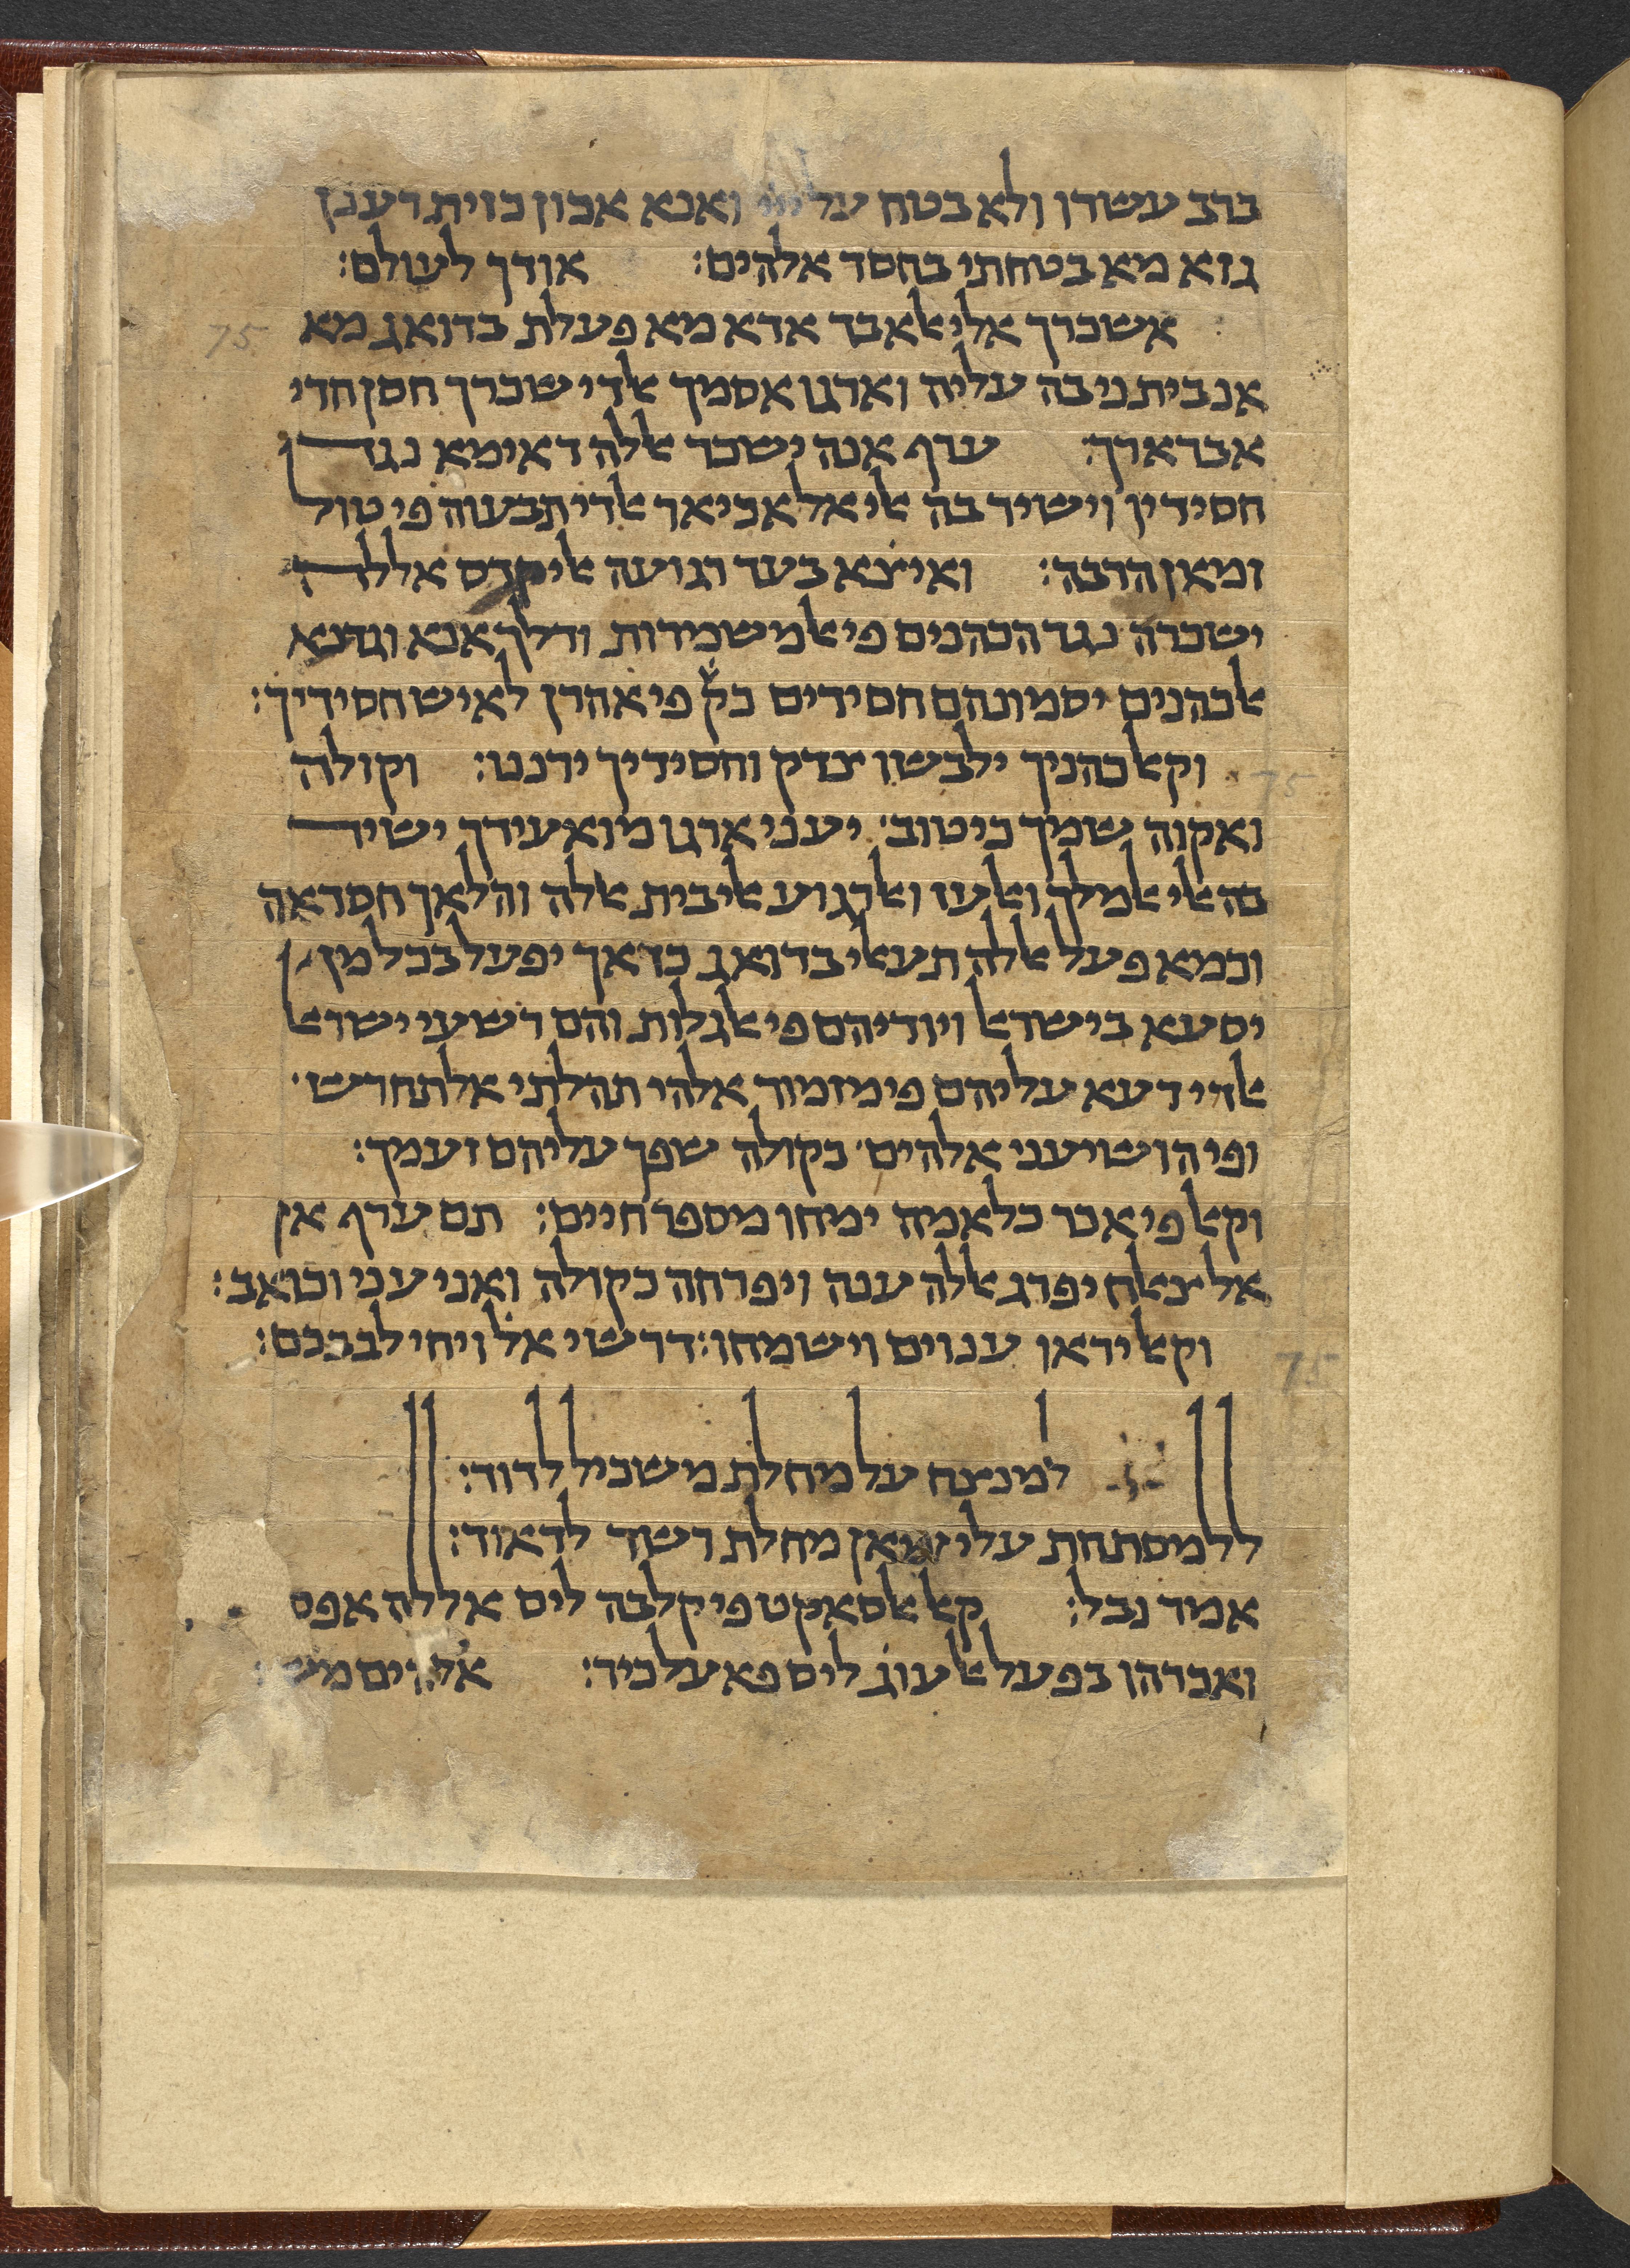 ברב עשרו ולא בטח על ואנא אכון כזית רענן
גזא מא בטחתי בחסד אלהים: אודך לעולם:
אשכרך אלי אלאבד אדא מא פעלת בדואג מא
75
אנביתני בה עליה וארגו אסמך אלדי שכרך חסן חדי
אבראדך: ערף אנה ישכר אללה דאימא נגד
חסידיו וישיר בה אלי אלאכיאר אלדי תבעוה פי טול
זמאן הרבה: ואיצא בעד רגועה אלי קדס אללה
ישכרה נגד הכהנים פי אלמשמרות ודלך אנא וגדנא
אלכהנים יסמונהם חסידים כק פי אהרן לאיש חסידיך:
וקאל כהניך ילבשו צדק וחסידיך ירננו: וקולה
75
ואקוה שמך כי טוב׳ יעני ארגו מואעידך ישיר
בה אלי אלמלך ואלעז ואלרגוע אלי בית אללה והלאך חסדאה
וכמא פעל אללה תעאלי בדואג כדאך יפעל בכל מן
יסעא בישראל ויודיהם פי אלגלות והם רשעי ישראל
אלדי דעא עליהם פי מזמור אלהי תהלתי אל תחרש׳
ופי הושיעני אלהים׳ בקולה שפך עליהם זעמך:
וקאל פי אכר כלאמה ימחו מספר חיים: תם ערף אן
אלצאלח יפרג אללה ענה ויפרחה בקולה ואני עני וכואב:
וקאל יראו ענוים וישמחו: דרשי אל ויחי לבבכם:
75
למנצח על מחלת משכיל לדוד:
ללמסתחת עלי זמאן מחלת רשד לדאוד:
אמר נבל: קאל אלסאקט פי קלבה ליס אללה אפס
ואכרהו בפעל אלעוג ליס פאעל כיר: